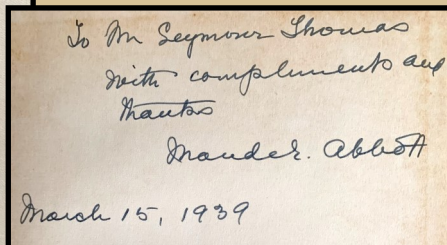 To Mr Seymour Thomas
with compliments and
thanks
Maude R. Abbott
March 15, 1939